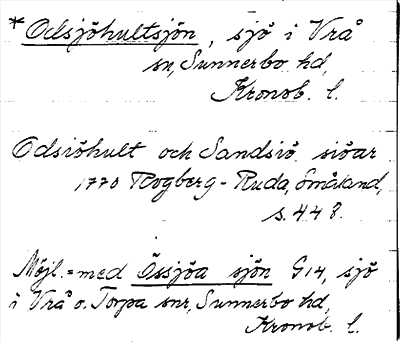 *Odsjöhultsjön, sjö i Vrå
sn, Sunnerbo hd,
Kronob. l.
Odsiöhult och Sandsiö siöar
1770 Rogberg-Ruda, Småland,
s. 448.
Möjl. = med Össjöa sjön G14, sjö
i Vrå o. Torpa snr, Sunnerbo hd,
Kronob. l.